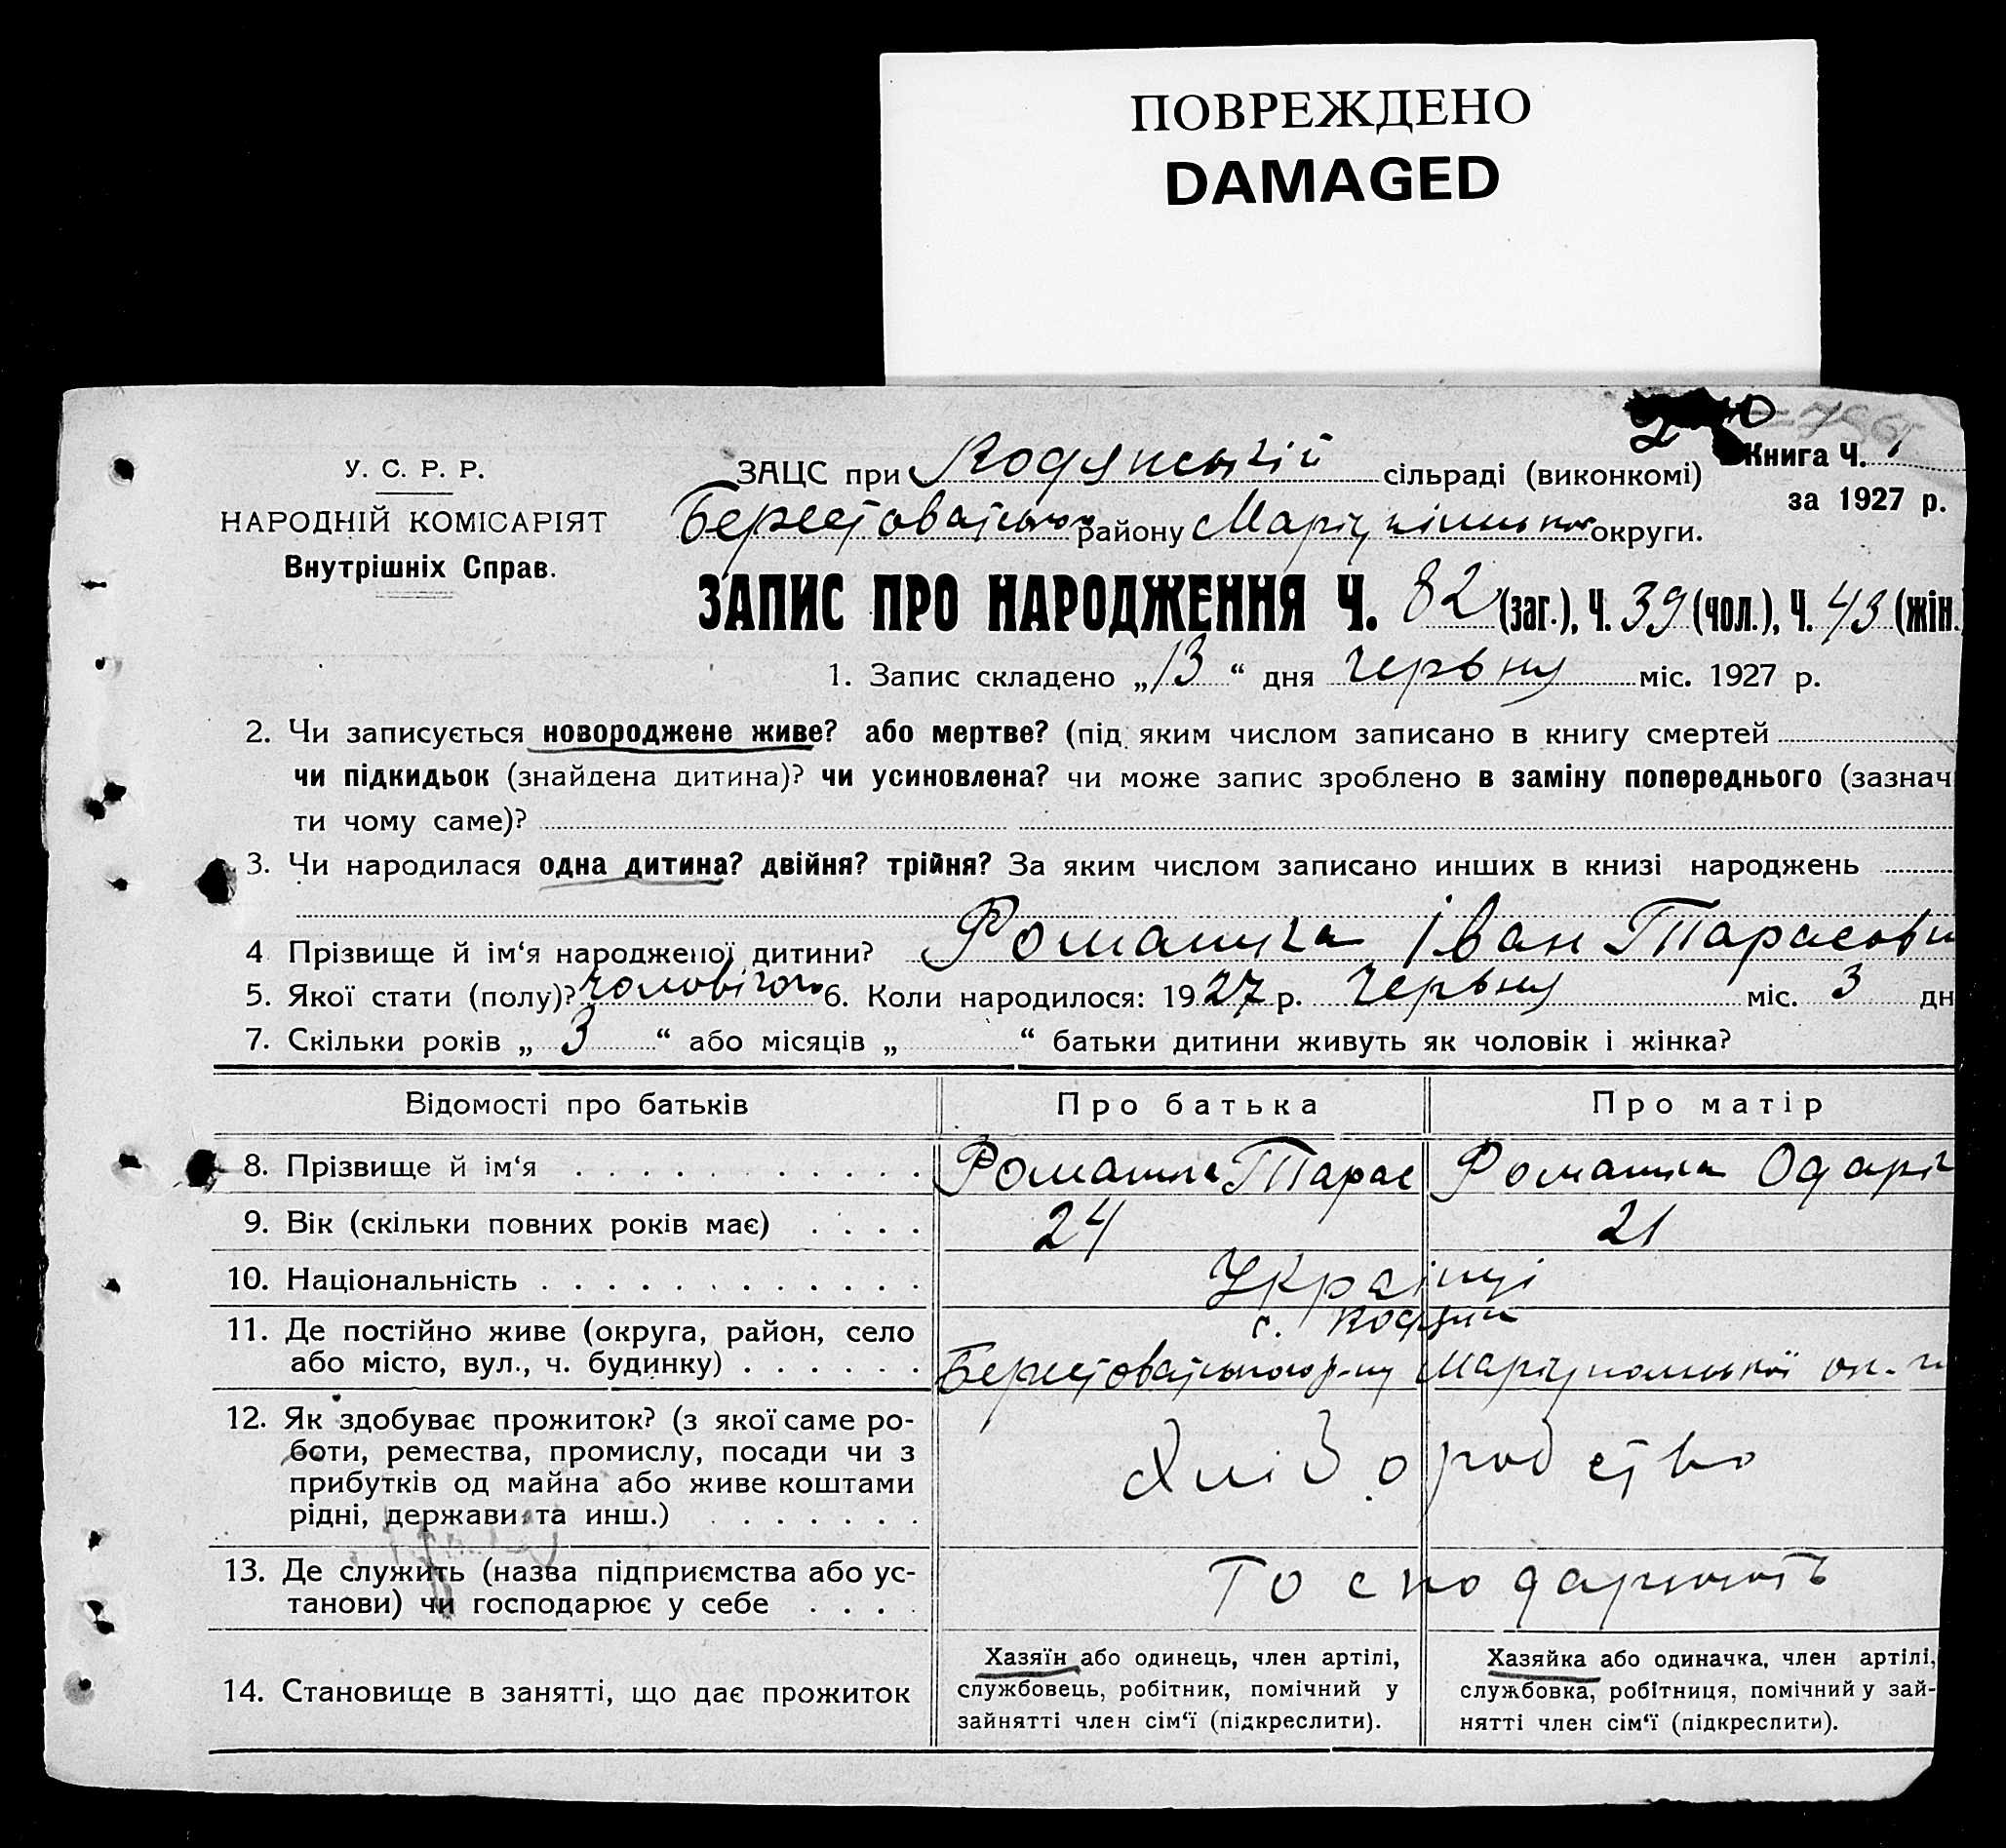 ПОВРЕЖДЕНО
DAMAGED
Книга Ч. 1
за 1927 р.
У. С. Р. Р.
НАРОДНІЙ КОМІСАРІЯТ
Внутрішніх Справ.
ЗАЦС при Кодинській сільраді (виконкомі)
Берестоватського району Маріупільської округи.
ЗАПИС ПРО НАРОДЖЕННЯ Ч. 82 (заг.), Ч. 39 (чол.), Ч. 43 (жін.)
1. Запис складено „13“ дня Червня міс. 1927 р.
2. Чи записується новороджене живе? або мертве? (під яким числом записано в книгу смертей
чи підкидьок (знайдена дитина)? чи усиновлена? чи може запис зроблено в заміну попереднього (зазнач
ти чому саме)?
3. Чи народилася одна дитина? двійня? трійня? За яким числом записано инших в книзі народжень
4 Прізвище й ім‘я народженої дитини? Ромашка Іван Тарасови
5. Якої стати (полу)? чоловічого 6. Коли народилося: 1927 р. Червня міс. 3 дн
7. Скільки років „3“ або місяців „ “ батьки дитини живуть як чоловік і жінка?
Відомості про батьків Про батька Про матір
8. Прізвище й ім‘я Ромашка Тарас Ромашка Одарі
9. Вік (скільки повних років має) 24 21
10. Національність Українці
11. Де постійно живе (округа, район, село с.
або місто, вул., ч. будинку) Берестоватського р-ну Маріупольської ок-ги
12. Як здобуває прожиток? (з якої саме ро-
боти, ремества, промислу, посади чи з
прибутків од майна або живе коштами
рідні, держави та инш.) Хліборобство
13. Де служить (назва підприємства або ус-
танови) чи господарює у себе Господарюють
14. Становище в занятті, що дає прожиток
Хазяїн або одинець, член артілі,
службовець, робітник, помічний у
зайнятті член сім‘ї (підкреслити).
Хазяйка або одиначка, член артілі,
службовка, робітниця, помічний у зай-
нятті член сім‘ї (підкреслити).